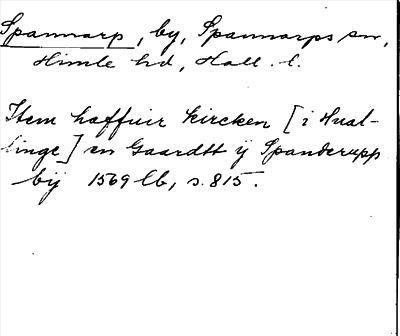 Spannarp, by, Spannarps sn,
Himle hd, Hall. l.
Item haffuir kircken [i Huat-
linge] en Gaardtt ÿ Spanderupp
bÿ 1569 lb, s. 815.